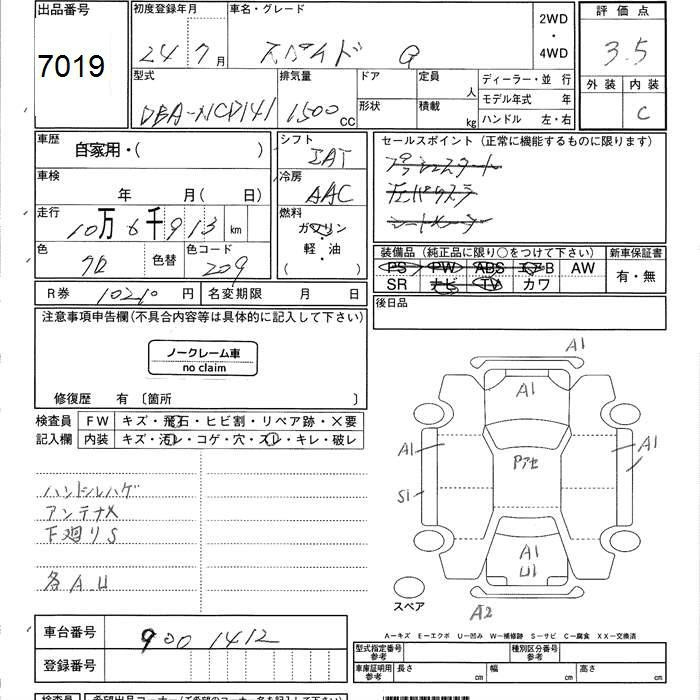 出品番号 初度登録年月 車名・グレード 2WD・4WD 評価点
7019 24 7月 スペイド G 3.5
型式 排気量 ドア 定員 人 ディーラー・並行 外装 内装
DBA-NCP141 1500cc 形状 積載 kg モデル年式 年 C
ハンドル 左・右
車歴 自家用・( )
シフト IAT
セールスポイント (正常に機能するものに限ります)
プッシュスタート
左Pパワスラ
シートヒーター
車検 年 月(日)
冷房 AAC
走行 10万6千913km
燃料 ガソリン・軽・油( )
色 クロ 色替 色コード 209
装備品 (純正品に限り○をつけて下さい) 新車保証書
PS PW ABS エアB AW 有・無
SR ナビ TV カワ
R券 10210円 名変期限 月 日
後日品
注意事項申告欄(不具合内容等は具体的に記入して下さい)
ノークレーム車
no claim
修復歴 有 〔箇所 〕
検査員記入欄 FW キズ・飛石・ヒビ割・リペア跡・X要
内装 キズ・汚レ・コゲ・穴・スレ・キレ・破レ
ハンドルハゲ
アンテナX
下廻りS
各A.U
A1
A1
A1
A1
Pアセ
S1
A1
U1
スペア
A2
A—キズ E—エクボ U—凹み W—補修跡 S—サビ C—腐食 XX—交換済
車台番号 900 1412
登録番号
型式指定番号 参考 種別区分番号 参考
車庫証明用 参考 長さ cm 幅 cm 高さ cm
検査員 希望出品コーナー(ご希望のコーナー名を記入下さい)